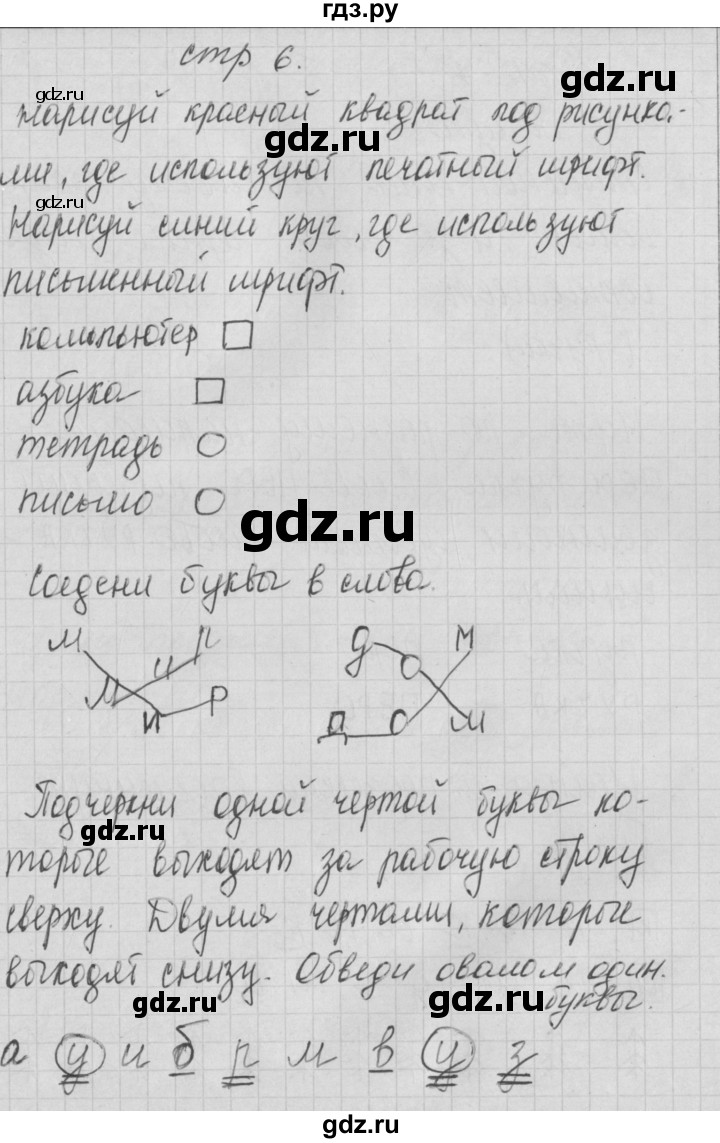 гдз.ру
стр 6.
gdz.ru
gdz.ru
Нарисуй красный квадрат под рисунка-
gdz.ru
ми, где используют печатный шрифт.
gdz.ru
Нарисуй синий круг, где используют
письменный шрифт.
компьютер
азбука
тетрадь
письмо
gdz.ru
Соедени буквы в слова.
м и р
М И Р
д о м
Д О М
Подчеркни одной чертой буквы ко-
gdz.ru
торые выходят за рабочую строку
сверху. Двумя чертами, которые
выходят снизу. Обведи овалом один.
gdz.ru
gdz.ru
буквы.
а у и б р м в у з
gdz.ru